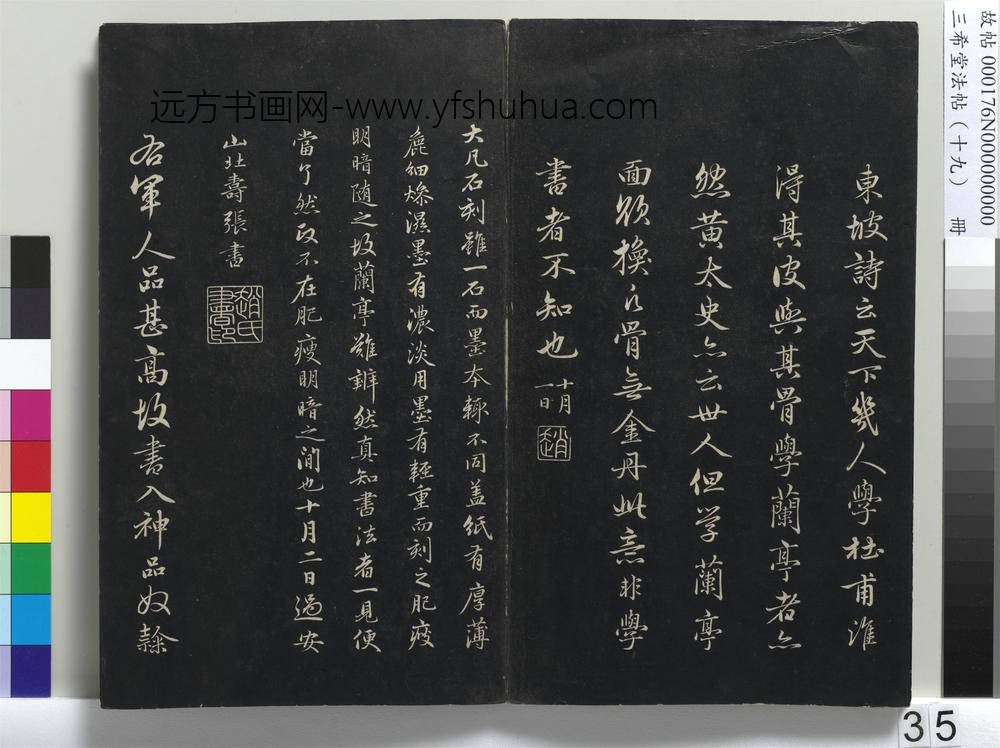 東坡詩云天下幾人學杜甫誰
得其皮與其骨學蘭亭者亦
然黃太史亦云世人但学蘭亭
面欲換凡骨無金丹此意非學
書者不知也
十月
一日
趙
大凡石刻雖一石而墨本輙不同盖紙有厚薄
麁細燥濕墨有濃淡用墨有輕重而刻之肥瘦
明暗随之故蘭亭難辨然真知書法者一見便
當了然政不在肥瘦明暗之間也十月二日過安
山北壽張書
趙氏
書印
右軍人品甚高故書入神品奴隸
远方书画网-www.yfshuhua.com
故帖 000176N000000000
三希堂法帖（十九） 冊
35